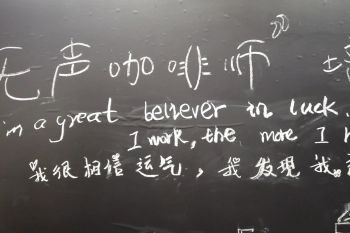 无声咖啡师
i'm a great believer in luck.
I work, the more I h
我很相信运气，我发现我